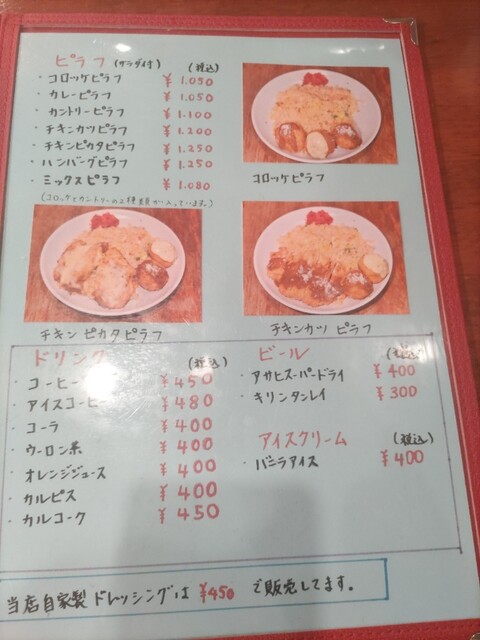 ピラフ (サラダ付) (税込)
・コロッケピラフ ¥1.050
・カレーピラフ ¥1.050
・カントリーピラフ ¥1.100
・チキンカツピラフ ¥1.200
・チキンピカタピラフ ¥1.250
・ハンバーグピラフ ¥1.250
・ミックスピラフ ¥1.080
(コロッケとカントリーの2種類が入っています。)
コロッケピラフ
チキンピカタピラフ
チキンカツ ピラフ
ドリンク (税込)
・コーヒー ¥450
・アイスコーヒー ¥480
・コーラ ¥400
・ウーロン茶 ¥400
・オレンジジュース ¥400
・カルピス ¥400
・カルコーク ¥450
ビール (税込)
・アサヒスーパードライ ¥400
・キリンタンレイ ¥300
アイスクリーム (税込)
・バニラアイス ¥400
当店自家製ドレッシングは ¥450 で販売してます。